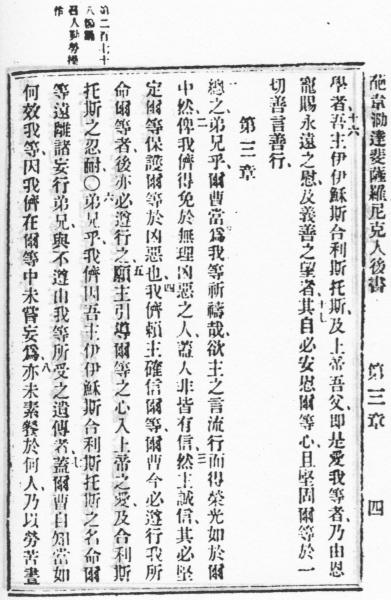 葩韋泐達斐薩羅尼克人後書 第三章 四
學者、十六吾主伊伊穌斯合利斯托斯及上帝吾父、卽是愛我等者、乃由恩
寵賜永遠之慰、及義善之望者、十七其自必安慰爾等心、且堅固爾等於一
切善言善行、
第三章
一總之弟兄乎、爾曹當爲我等祈禱哉、欲主之言流行而得榮光如於爾
中然、二俾我儕得免於無理凶惡之人、蓋人非皆有信、三然主誠信、其必堅
定爾等保護爾等於凶惡也、四我儕賴主確信爾等、爾曹今必遵行我所
命爾等者、後亦必遵行之、五願主引導爾等之心入上帝之愛、及合利斯
托斯之忍耐、〇六弟兄乎、我儕因吾主伊伊穌斯合利斯托斯之名命爾
等遠離諸妄行弟兄、與不遵由我等所受之遺傳者、七蓋爾曹自知當如
何效我等、因我儕在爾等中未嘗妄爲、八亦未素餐於何人、乃以勞苦晝
第二百七十
八
召人勤勞操
作